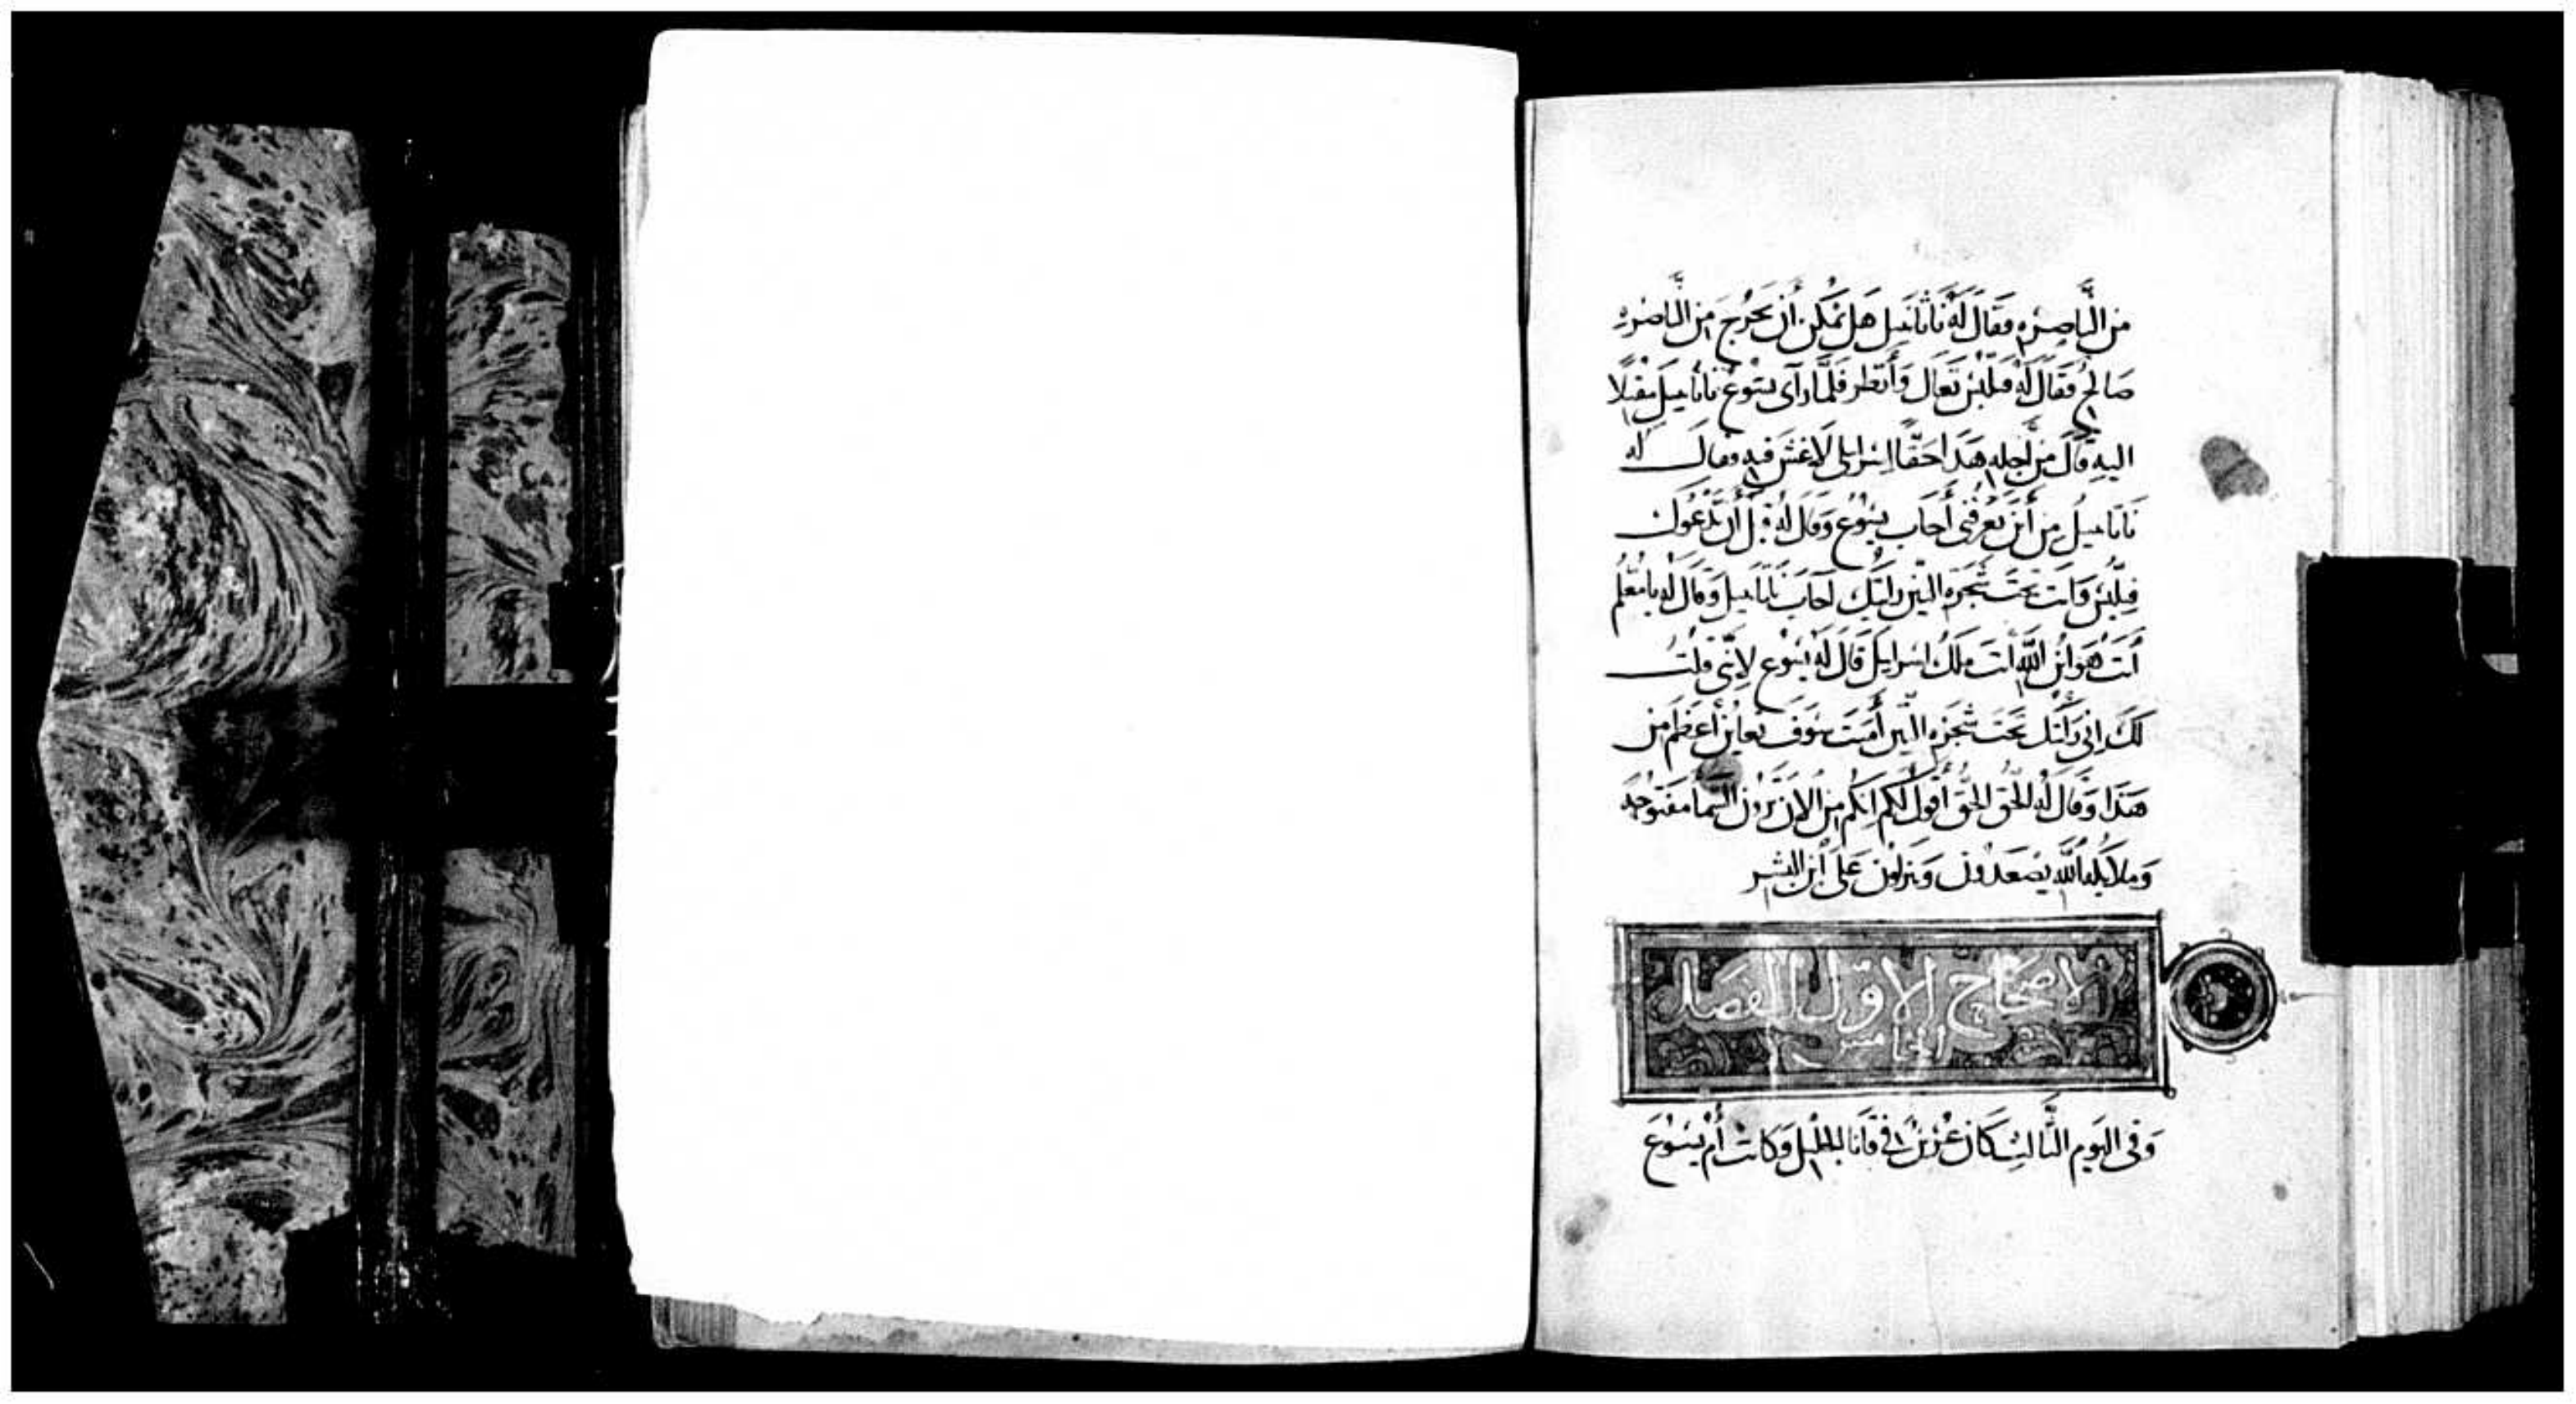 من الناصره فقال له ناثانييل هل يمكن أن يخرج من الناصره
صالح فقال له فيلبس تعال وأنظر فلما رآى يسوع ناثانييل مقبلا
اليه قال من أجله هذا حقا اسرايلى لا غش فيه فقال له
ناثانييل من أين تعرفنى أجاب يسوع وقال له قبل أن تدعوك
فيلبس وانت تحت شجرة التين رايتك اجاب ناثانييل وقال له يا معلم
أنت هو ابن الله أنت ملك اسرايل قال له يسوع لانى قلت
لك انى رايتك تحت شجرة التين أمنت سوف تعاين أعظم من
هذا وقال له الحق الحق أقول لكم انكم من الان ترون السما مفتوحه
وملايكة الله يصعدون وينزلون على أبن البشر
الاصحاح الاول الفصل
الخامس
وفى اليوم الثالث كان عرس فى قانا الجليل وكانت أم يسوع